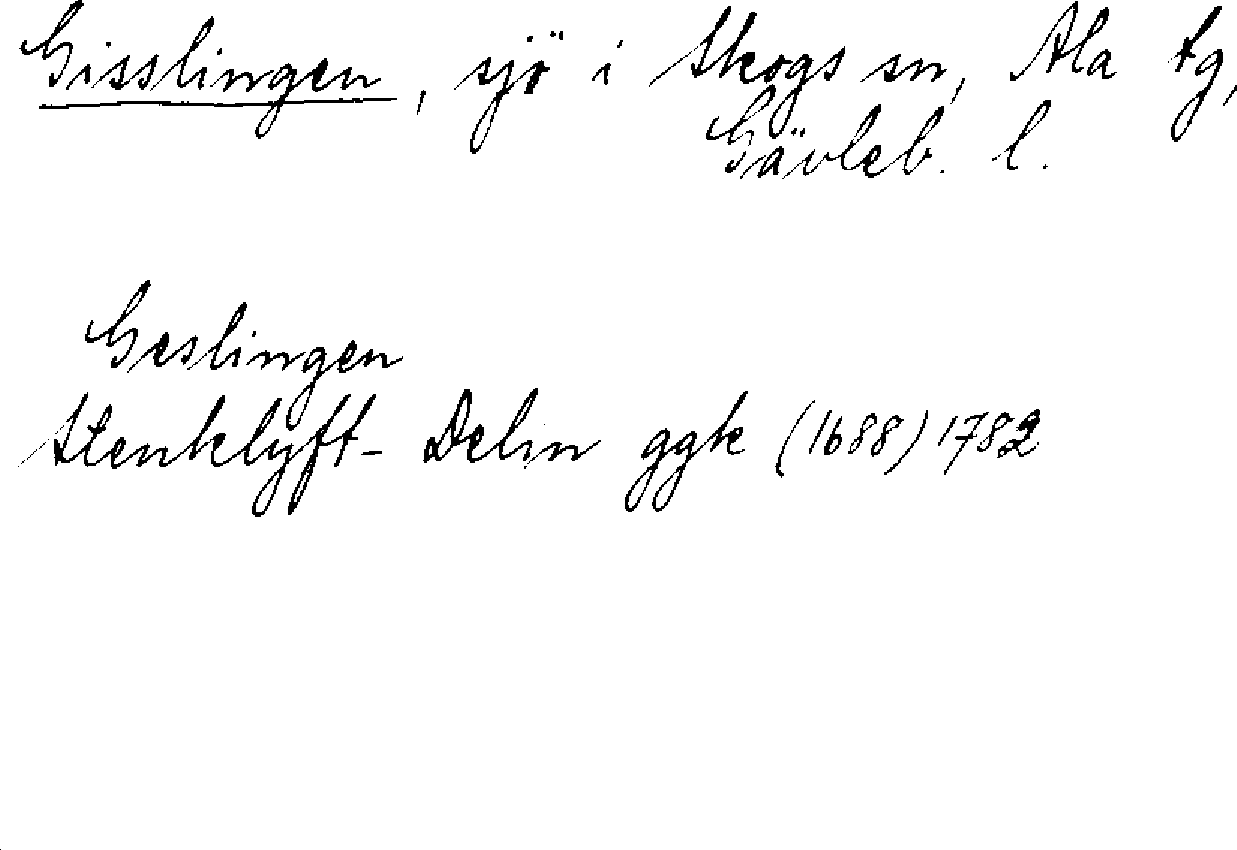 Gisslingen, sjö i Skogs sn, Ala tg,
Gävleb. l.
Geslingen
Stenklyft- Delin ggk (1688) 1782